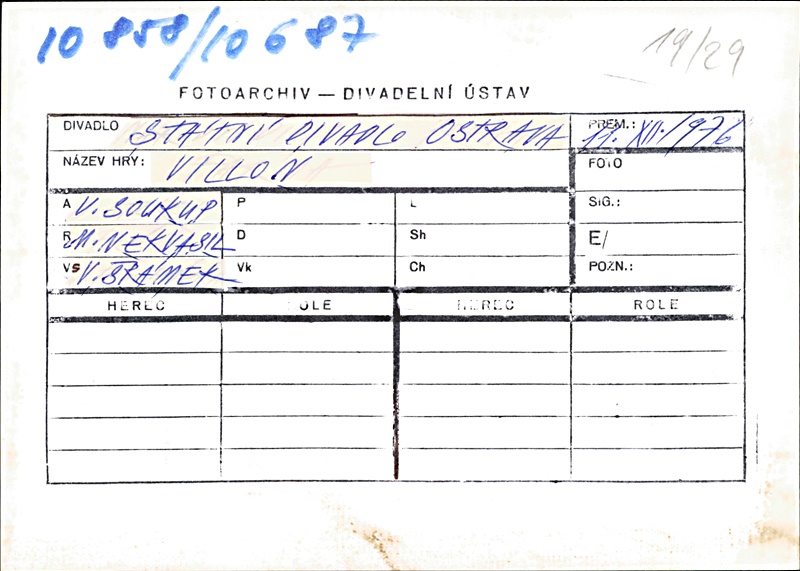 10 858/10 687
19/29
FOTOARCHIV — DIVADELNÍ ÚSTAV
DIVADLO STÁTNÍ DIVADLO OSTRAVA PREM.: 11. XII. 1976
NÁZEV HRY: VILLON FOTO
A V. SOUKUP P L SIG.:
R M. NEKVASIL D Sh E/
Vs V. ŠRÁMEK Vk Ch POZN.:
HEREC ROLE HEREC ROLE